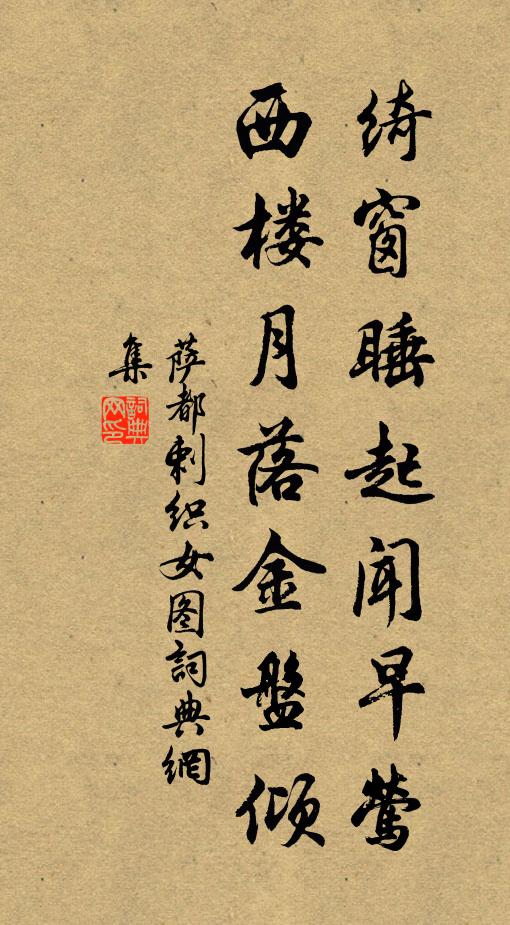 绮窗睡起闻早莺
西楼月落金盤倾
萨都剌织女图詞典網
集
詞典网印